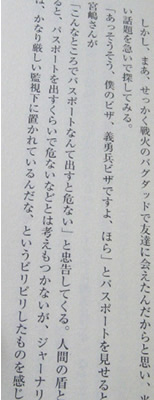 しかし、まあ、せっかく戦火のバグダッドで友達に会えたんだからと思い、
い話題を急いで探してみる。
「あっそうそう、僕のビザ、義勇兵ビザですよ、ほら」とパスポートを見せると
宮嶋さんが
「こんなところでパスポートなんて出すと危ない」と忠告してくる。人間の盾と
ると、パスポートを出すくらいで危ないなどとは考えもつかないが、ジャーナリ
は、かなり厳しい監視下に置かれているんだな、というピリピリしたものを感じ